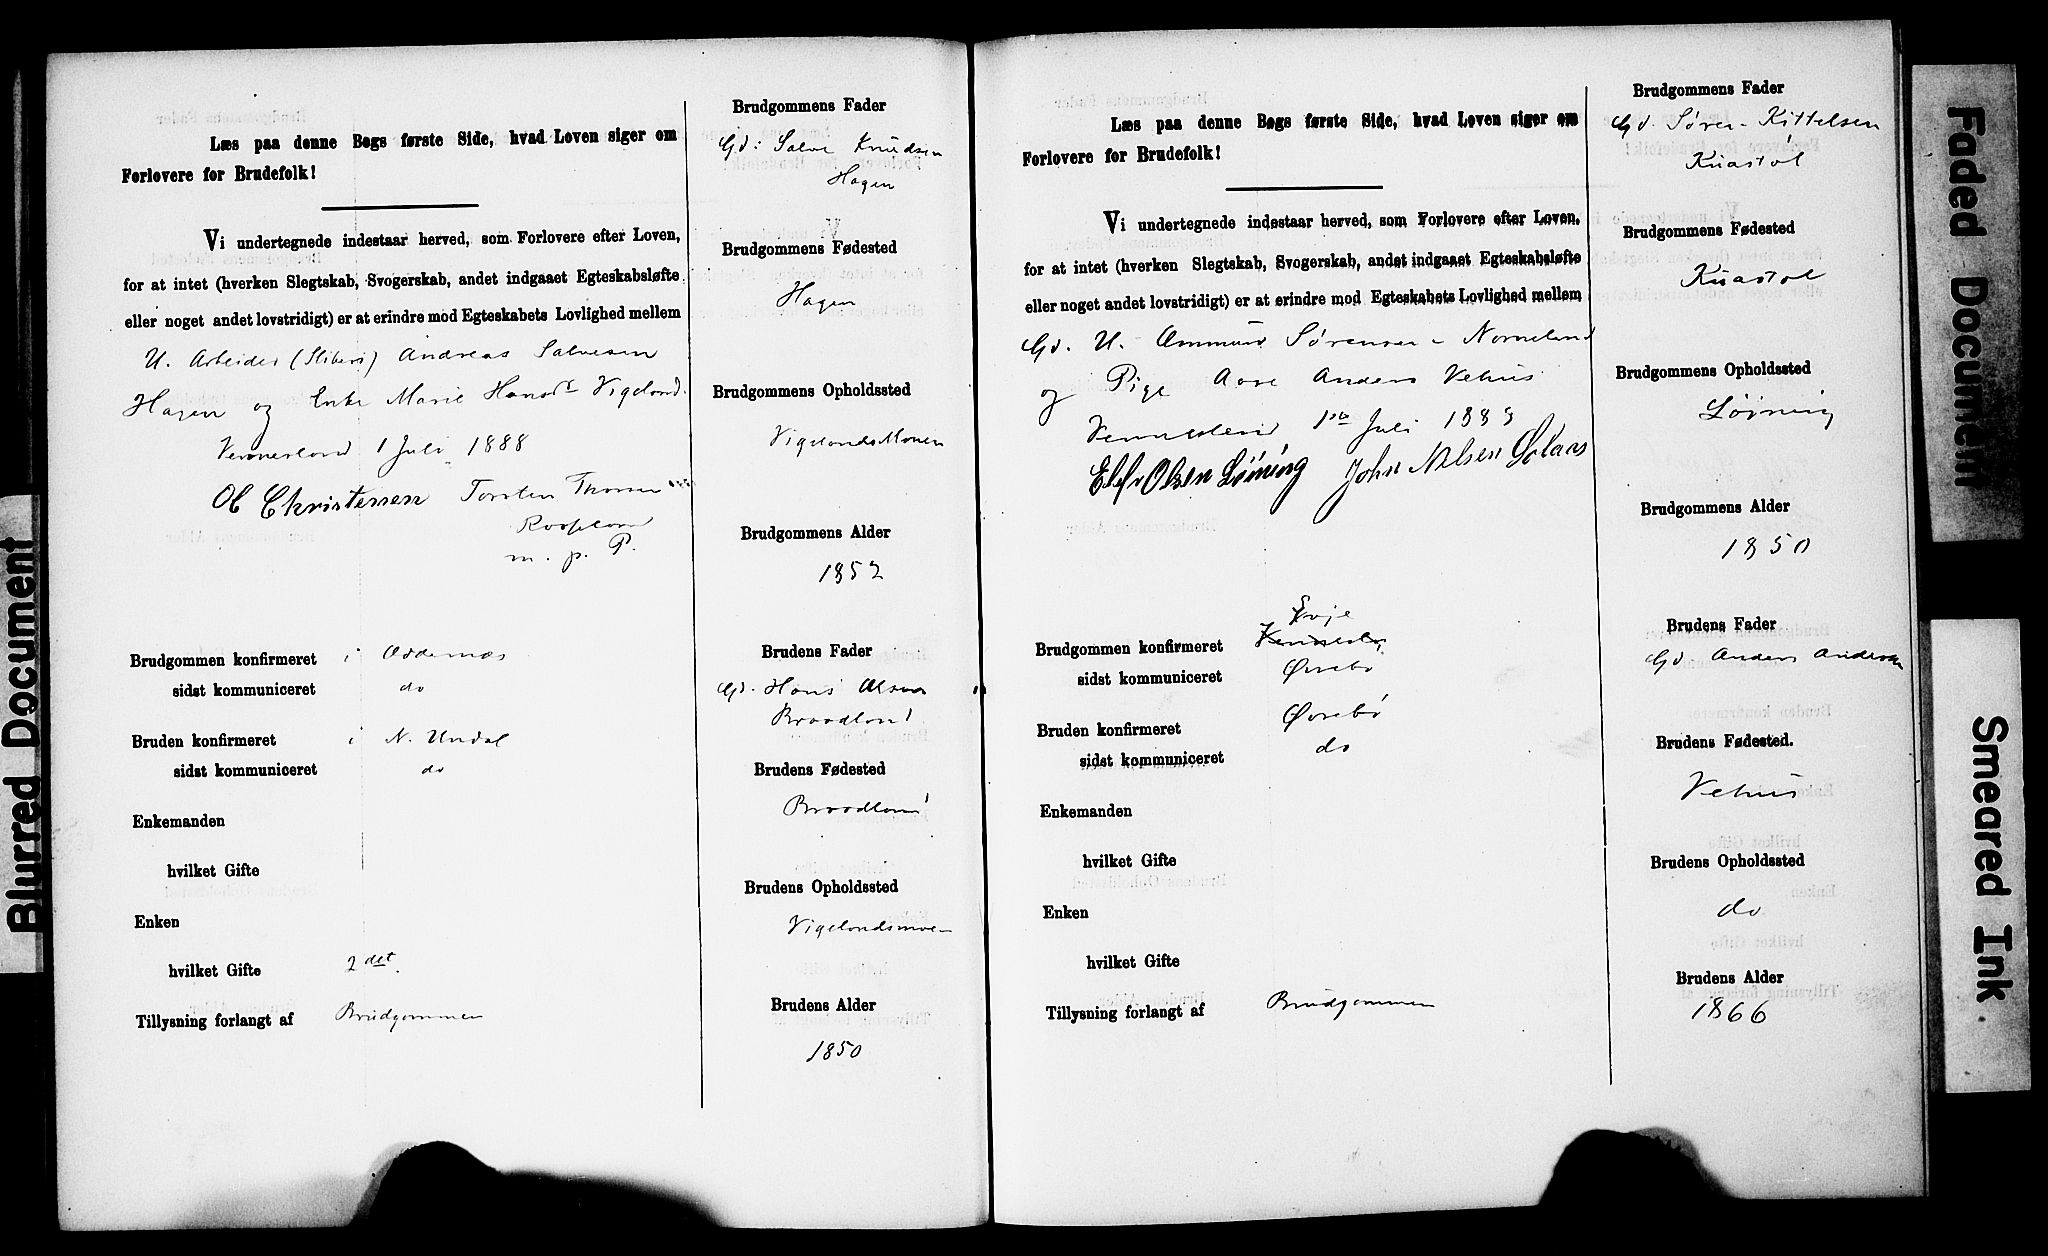 Læs paa denne Bogs første Side, hvad Loven siger om
Forlovere for Brudefolk!
Vi undertegnede indestaar herved, som Forlovere efter Loven,
for at intet (hverken Slegtskab, Svogerskab, andet indgaaet Egteskabsløfte
eller noget andet lovstridigt) er at erindre mod Egteskabets Lovlighed mellem
U. Arbeider (Sliberi) Andreas Salvesen
Hagen og Enke Marie Hansdt Vigeland
Vennesland 1 Juli 1888
Ol Christensen Torsten
m. p. P.
Brudgommen konfirmeret i Oddernes
sidst kommuniceret do
Bruden konfirmeret i N. Undal
sidst kommuniceret do
Enkemanden
hvilket Gifte
Enken
hvilket Gifte 2det
Tillysning forlangt af Brudgommen
Brudgommens Fader
Gd: Salve Knudsen
Hagen
Brudgommens Fødested
Hagen
Brudgommens Opholdssted
VigelandsMoen
Brudgommens Alder
1852
Brudens Fader
Gd. Hans Olsen
Braadland
Brudens Fødested
Braadland
Brudens Opholdssted
Vigelandsmoen
Brudens Alder
1850
Læs paa denne Bogs første Side, hvad Loven siger om
Forlovere for Brudefolk!
Vi undertegnede indestaar herved, som Forlovere efter Loven,
for at intet (hverken Slegtskab, Svogerskab, andet indgaaet Egteskabsløfte
eller noget andet lovstridigt) er at erindre mod Egteskabets Lovlighed mellem
Gd. U. Ommund Sørensen
og Pige Aase Anders Vehus
1ste Juli 1888
Elef Olsen Løining John Nilsen
Brudgommen konfirmeret Evje
sidst kommuniceret Øvrebø
Bruden konfirmeret Øvrebø
sidst kommuniceret do
Enkemanden
hvilket Gifte
Enken
hvilket Gifte
Tillysning forlangt af Brudgommen
Brudgommens Fader
Gd. Søren Kittelsen
Kuastøl
Brudgommens Fødested
Kuastøl
Brudgommens Opholdssted
Løining
Brudgommens Alder
1850
Brudens Fader
Gd Anders Andersen
Brudens Fødested.
Vehus
Brudens Opholdssted
do
Brudens Alder
1866
Blurred Document
Faded Document
Smeared Ink